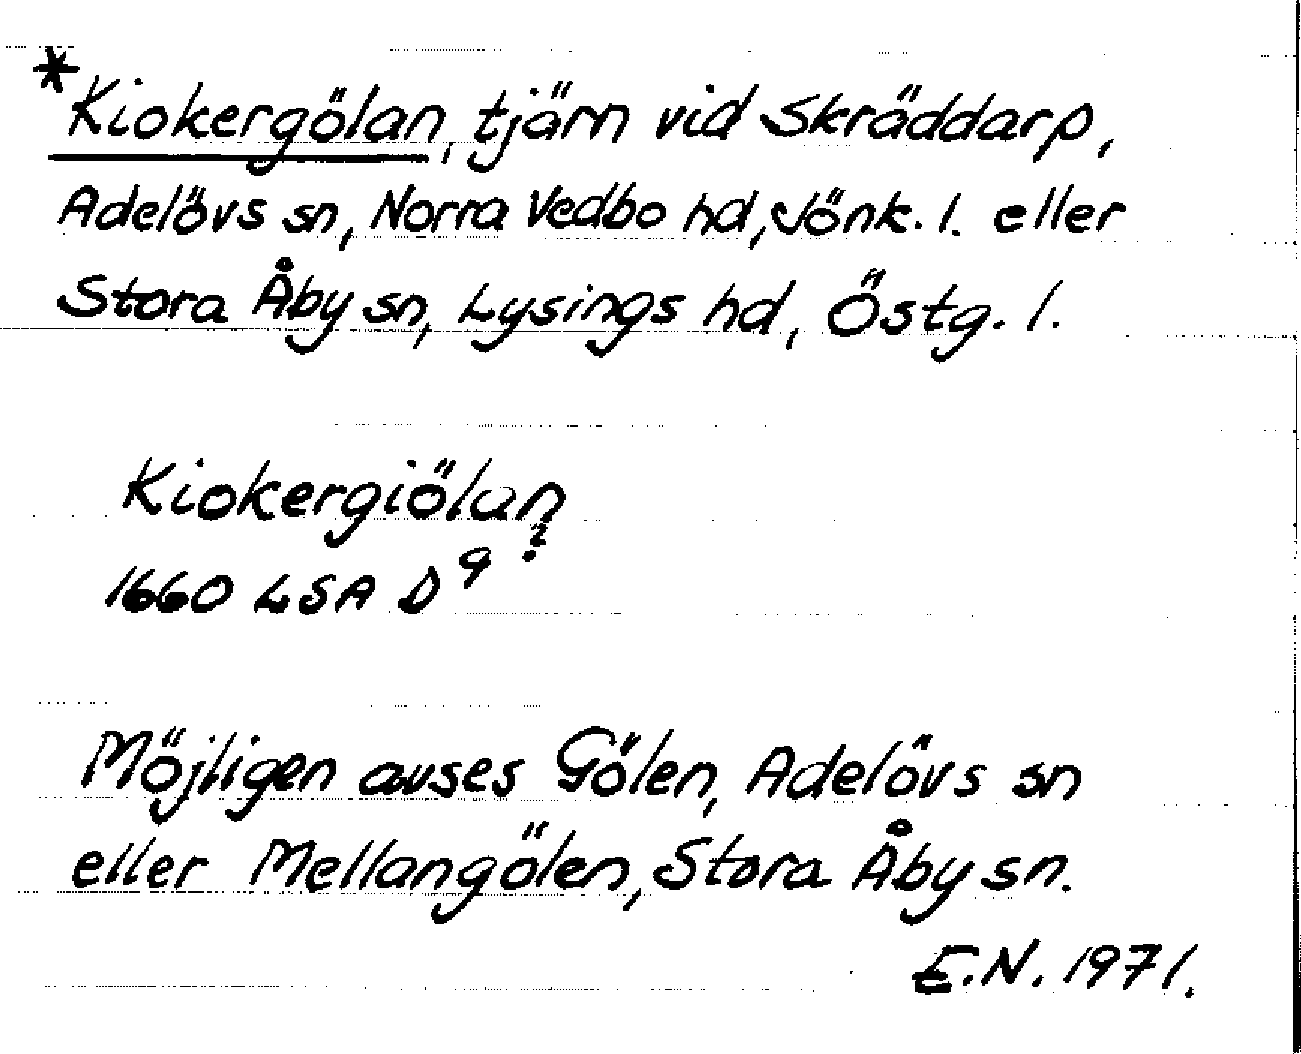 *Kiokergölan, tjärn vid Skräddarp,
Adelövs sn, Norra Vedbo hd, Jönk. l. eller
Stora Åby sn, Lysings hd, Östg. l.
Kiokergiölan?
1660 LSA D 9
Möjligen avses Gölen, Adelövs sn
eller Mellangölen, Stora Åby sn.
E.N. 1971.